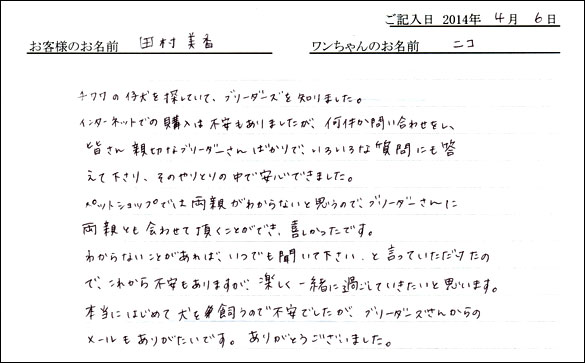 ご記入日 2014年 4月 6日
お客様のお名前 田村 美香 ワンちゃんのお名前 ニコ
チワワの仔犬を探していて、ブリーダーズを知りました。
インターネットでの購入は不安もありましたが、何件か問い合わせをし、
皆さん親切なブリーダーさんばかりで、いろいろな質問にも答
えて下さり、そのやりとりの中で安心できました。
ペットショップでは両親がわからないと思うので、ブリーダーさんに
両親とも会わせて頂くことができ、喜しかったです。
わからないことがあれば、いつでも聞いて下さい。と言っていただけたの
で、これから不安もありますが、楽しく一緒に過ごしていきたいと思います。
本当にはじめて犬を飼うので不安でしたが、ブリーダーズさんからの
メールもありがたいです。ありがとうございました。